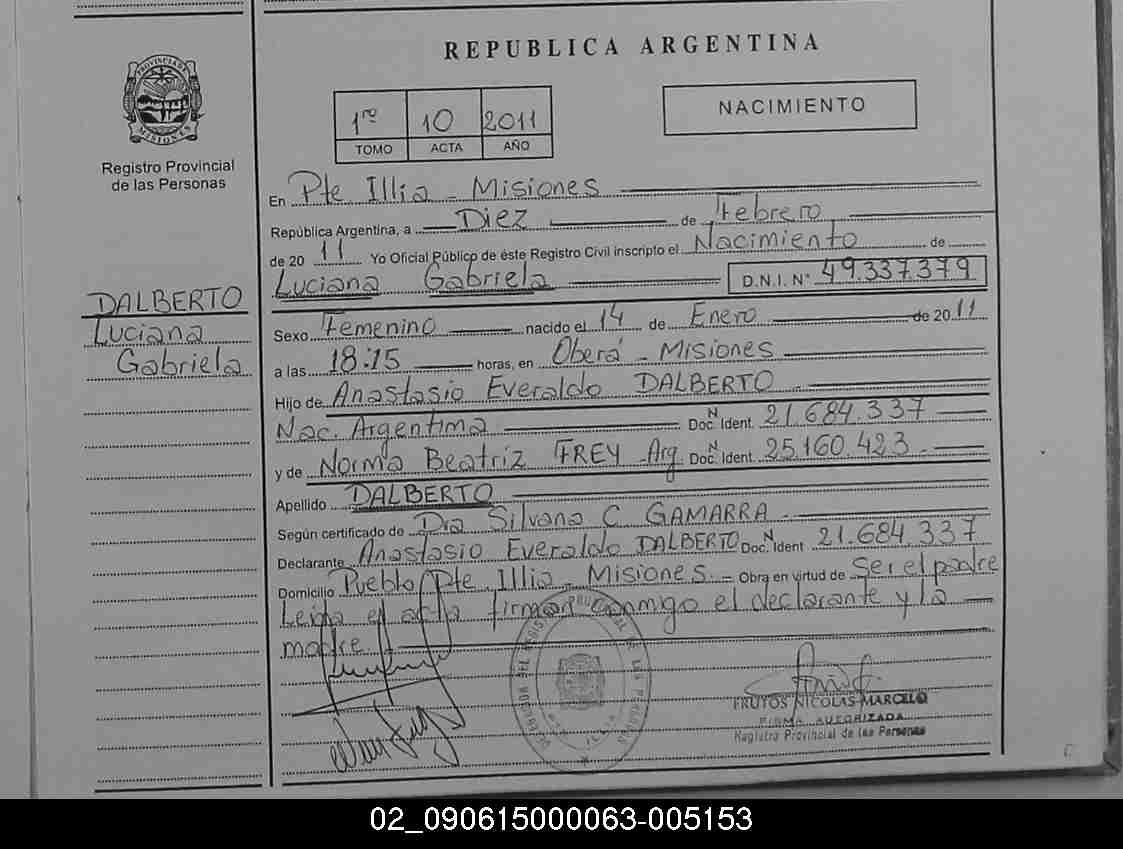 REPUBLICA ARGENTINA
PROVINCIA DE MISIONES
Registro Provincial
de las Personas
1ro 10 2011
TOMO ACTA AÑO
NACIMIENTO
En Pte Illia - Misiones
República Argentina, a Diez de Febrero
de 20 11 Yo Oficial Público de éste Registro Civil inscripto el Nacimiento de
Luciana Gabriela D.N.I. N° 49.337.379
DALBERTO
Luciana
Gabriela
Sexo Femenino nacido el 14 de Enero de 2011
a las 18:15 horas, en Oberá - Misiones
Hijo de Anastasio Everaldo DALBERTO
Nac. Argentina Doc. N Ident. 21.684.337
y de Norma Beatriz FREY Arg. Doc. N Ident. 25.160.423
Apellido DALBERTO
Según certificado de Dra Silvana C. GAMARRA
Declarante Anastasio Everaldo DALBERTO Doc. N Ident 21.684.337
Domicilio Pueblo Pte Illia - Misiones. - Obra en virtud de Ser el padre
Leída el acta firman conmigo el declarante y la
madre
FRUTOS NICOLAS MARCELO
FIRMA AUTORIZADA
Registro Provincial de las Personas
02_090615000063-005153